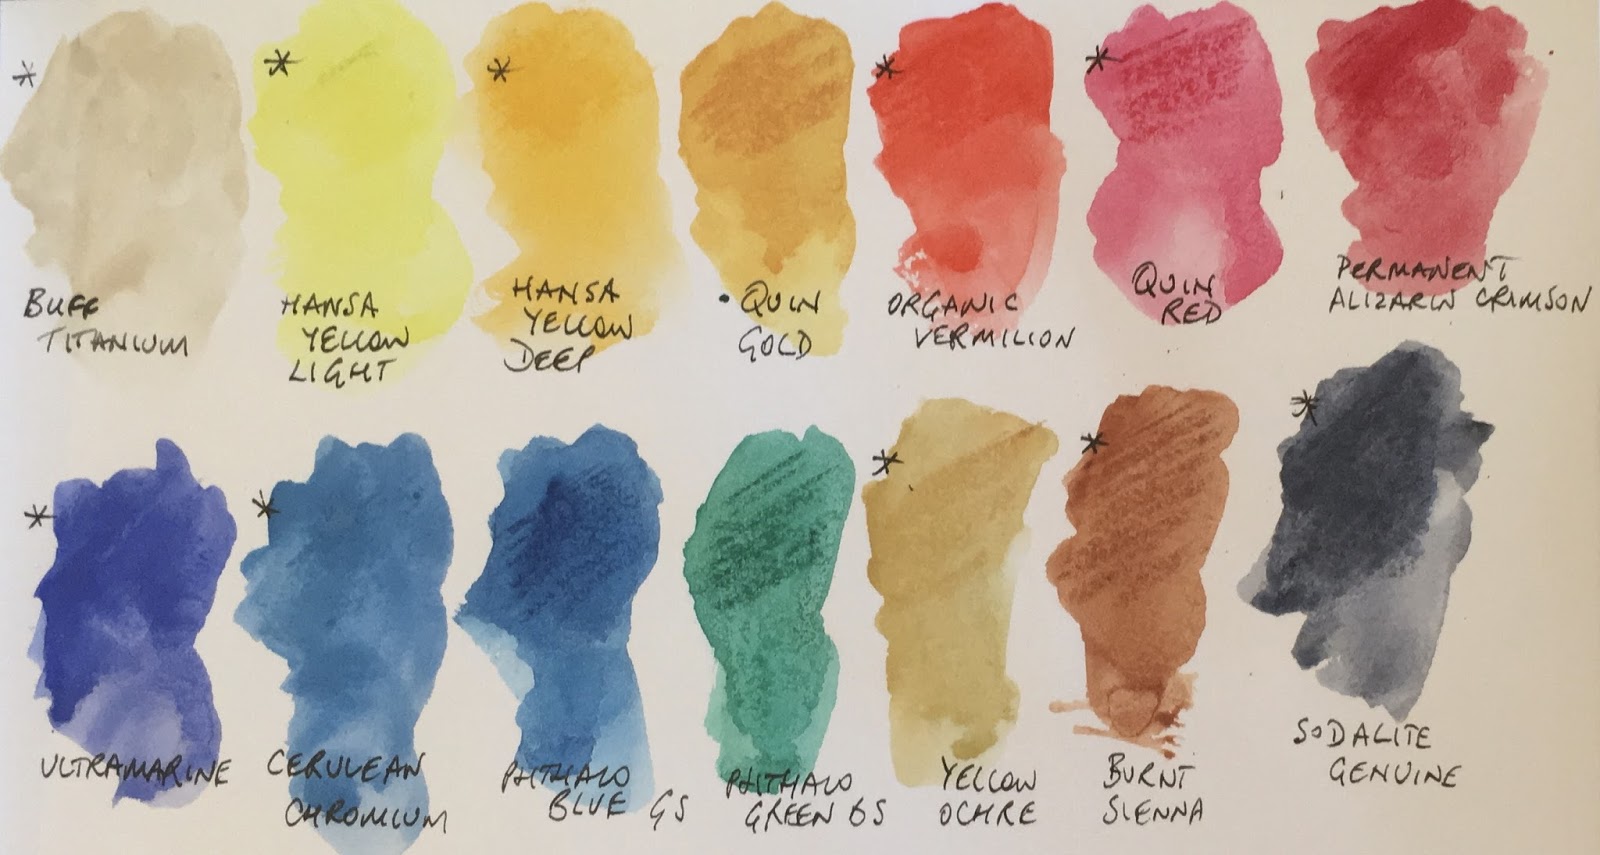 * BUFF
TITANIUM
* HANSA
YELLOW
LIGHT
* HANSA
YELLOW
DEEP
• QUIN
GOLD
* ORGANIC
VERMILION
* QUIN
RED
PERMANENT
ALIZARIN CRIMSON
* ULTRAMARINE
* CERULEAN
CHROMIUM
PHTHALO
BLUE GS
PHTHALO
GREEN BS
* YELLOW
OCHRE
* BURNT
SIENNA
* SODALITE
GENUINE